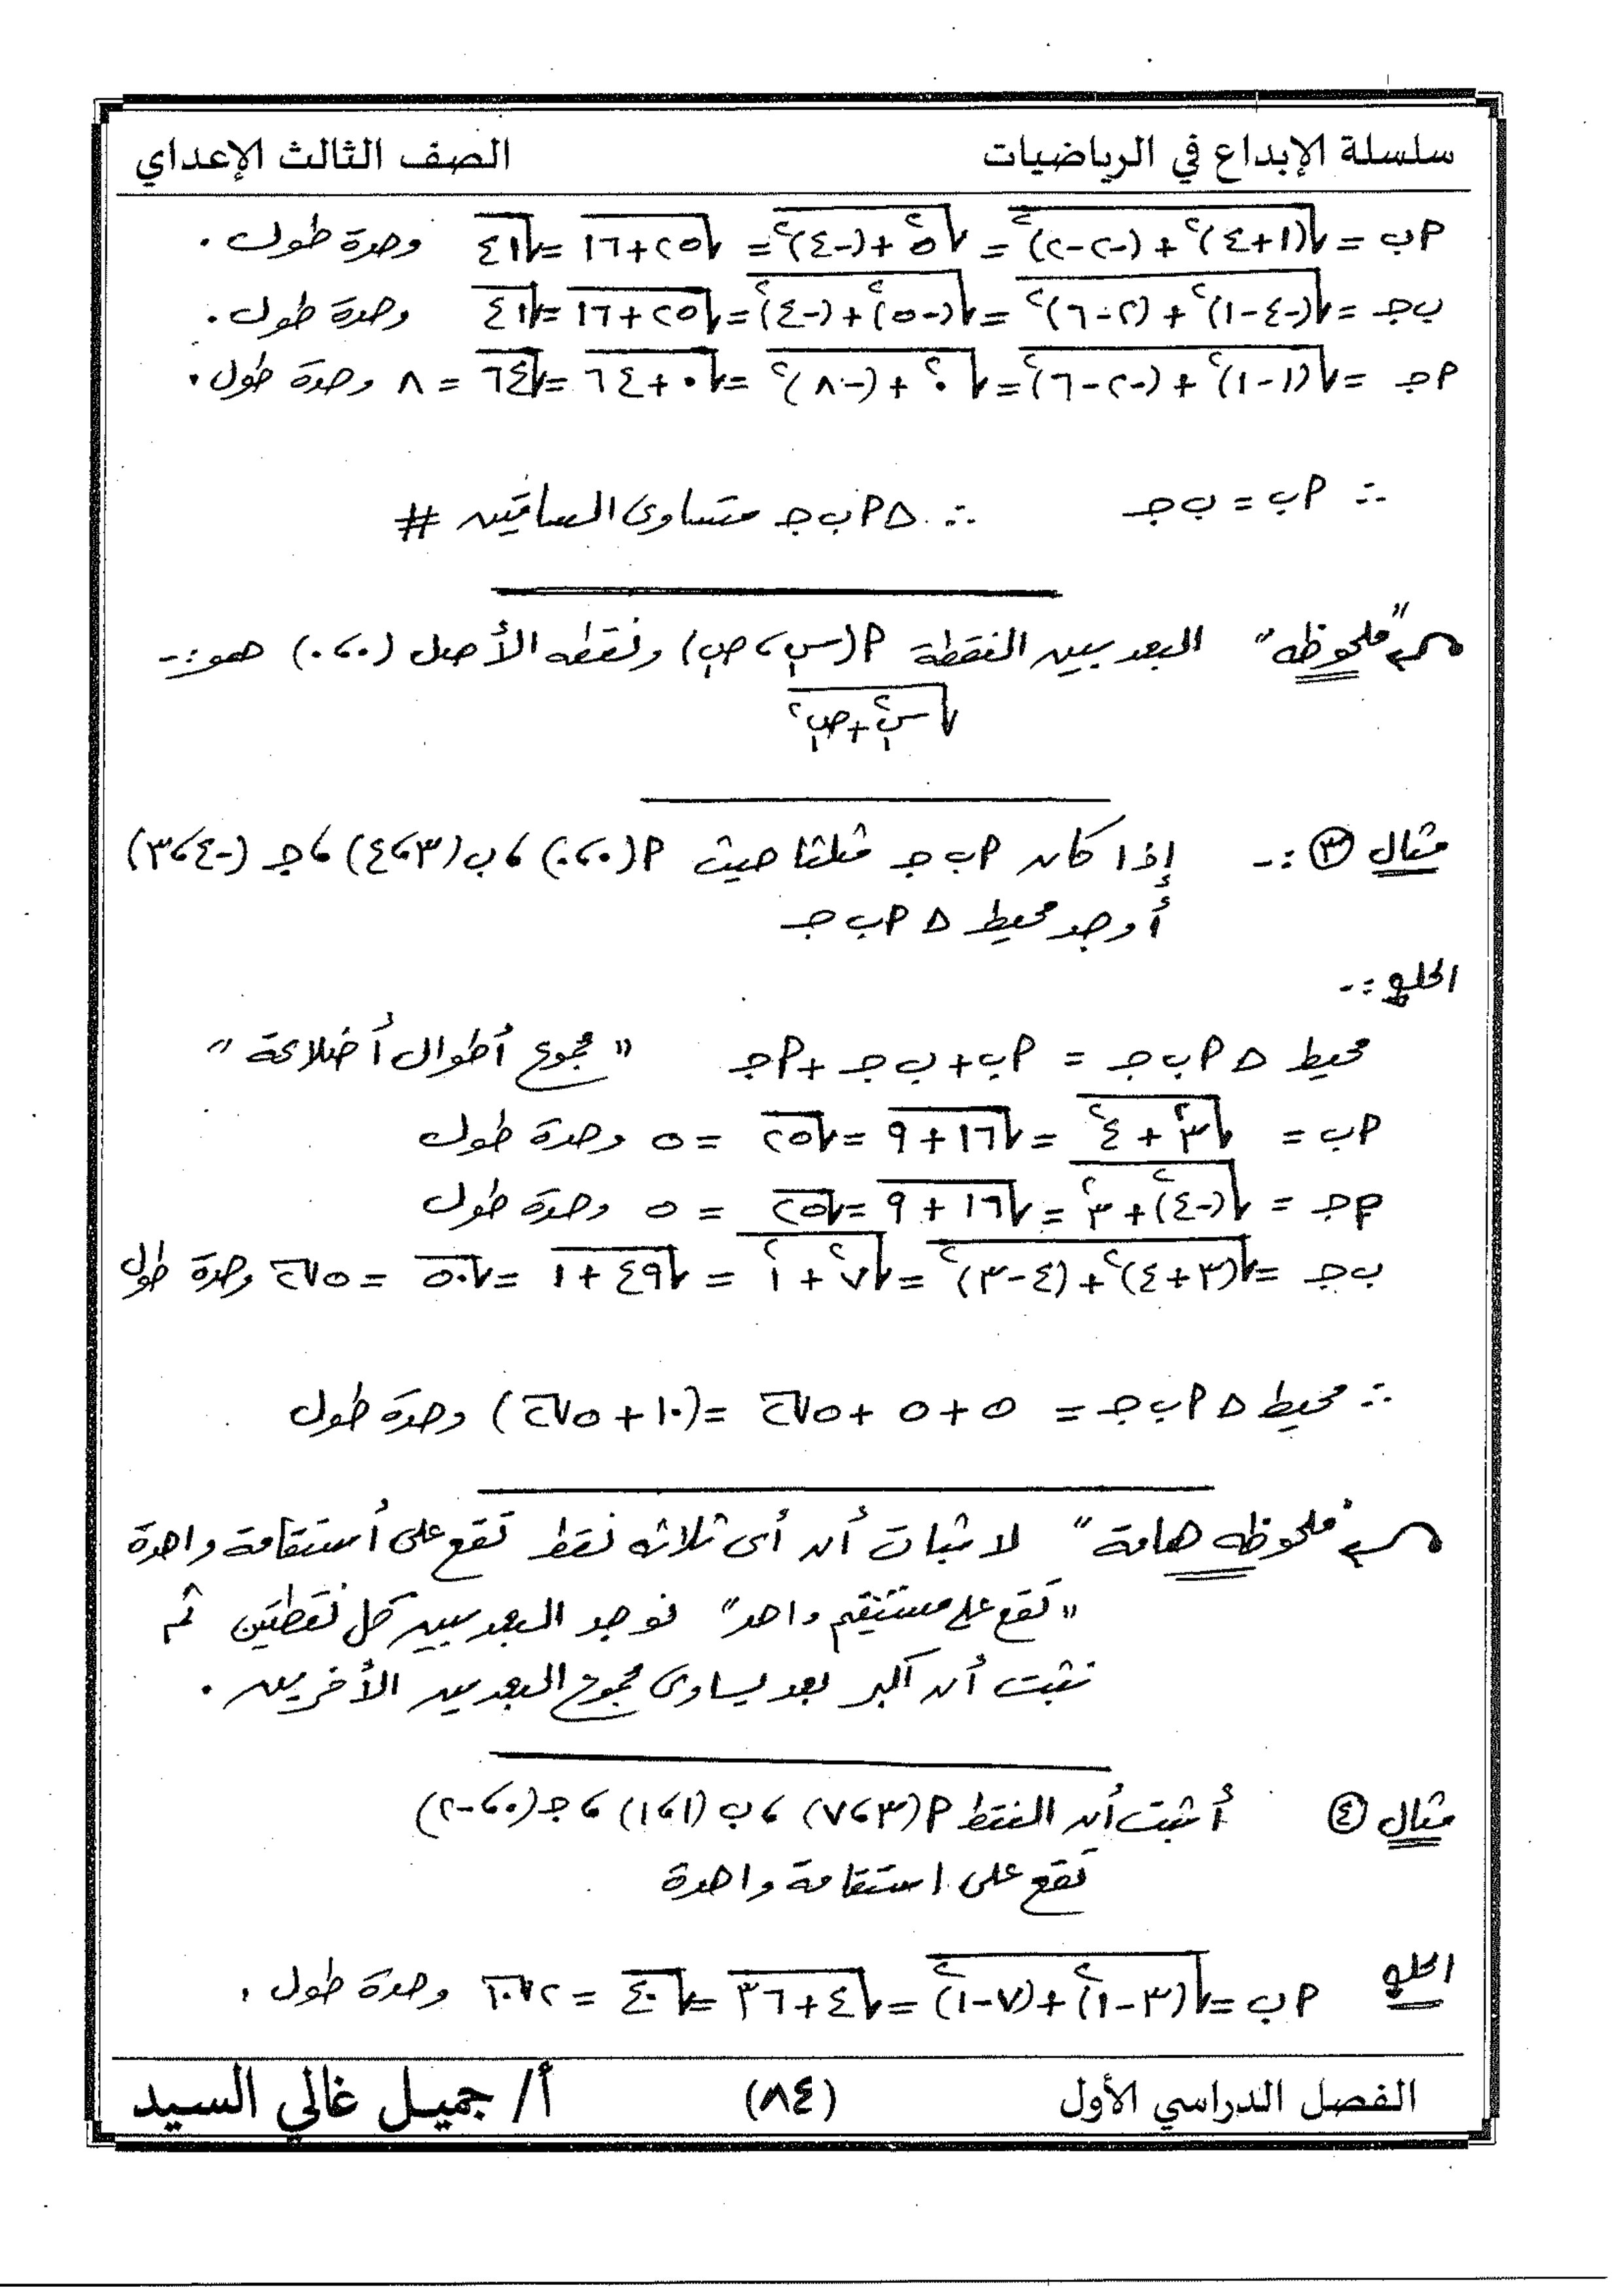 سلسلة الإبداع في الرياضيات الصف الثالث الإعداي
أب = √((١+٤)² + (-٢-٢)²) = √(٥² + (-٤)²) = √(٢٥+١٦) = √٤١ وحدة طول .
ب جـ = √((-٤-١)² + (٢-٦)²) = √((-٥)² + (-٤)²) = √(٢٥+١٦) = √٤١ وحدة طول .
أجـ = √((١-١)² + (-٢-٦)²) = √(٠² + (-٨)²) = √(٠+٦٤) = √٦٤ = ٨ وحدة طول .
∴ أب = ب جـ ∴ △ أب جـ متساوى الساقين #
"ملحوظه" البعد بين النقطة أ(س١ ، ص١) ونقطه الأصل (٠،٠) هو :-
√(س١² + ص١²)
مثال ③ :- إذا كان أب جـ مثلثا حيث أ(٠،٠) ، ب(٣،٤) ، جـ(-٤،٣)
أوجد محيط △ أب جـ
الحل :-
محيط △ أب جـ = أب + ب جـ + أجـ "مجموع أطوال أضلاعة"
أب = √(٣² + ٤²) = √(١٦+٩) = √٢٥ = ٥ وحدة طول
أجـ = √((-٤)² + ٣²) = √(١٦+٩) = √٢٥ = ٥ وحدة طول
ب جـ = √((٣+٤)² + (٤-٣)²) = √(٧² + ١²) = √(٤٩+١) = √٥٠ = ٥√٢ وحدة طول
∴ محيط △ أب جـ = ٥ + ٥ + ٥√٢ = (١٠ + ٥√٢) وحدة طول
"ملحوظه هامة" لاثبات أن أى ثلاثه نقط تقع على أستقامة واحدة
"تقع على مستقيم واحد" نوجد البعد بين كل نقطتين ثم
نثبت أن أكبر بعد يساوى مجموع البعدين الأخرين .
مثال ④ أثبت أن النقط أ(٣،٧) ، ب(١،١) ، جـ(٠،-٢)
تقع على استقامة واحدة
الحل أب = √((٣-١)² + (٧-١)²) = √(٤+٣٦) = √٤٠ = ٢√١٠ وحدة طول .
الفصل الدراسي الأول (٨٤) أ/ جميل غالي السيد